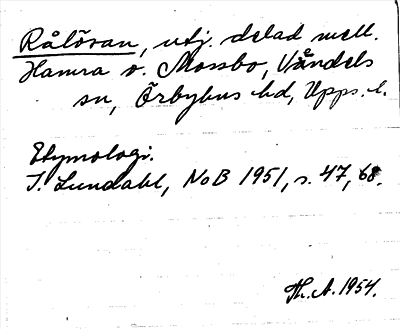 Rålöran, utj. delad mell.
Hamra o. Mossbo, Våndels
sn, Örbyhus hd, Upps. l.
Etymologi.
I. Lundahl, NoB 1951, s. 47, 68.
Th. A. 1954.